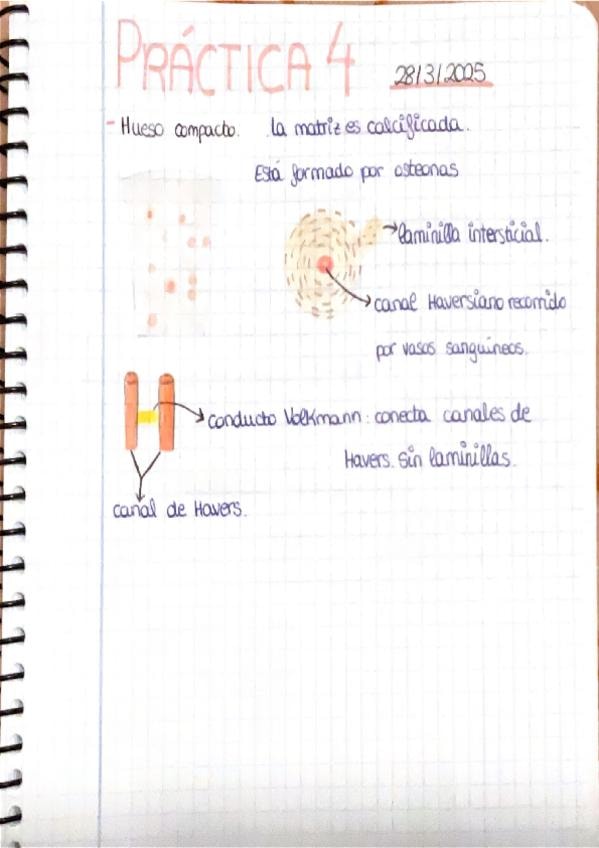 PRÁCTICA 4 28/3/2025
- Hueso compacto. La matriz es calcificada.
Está formado por osteonas
laminilla intersticial.
canal Haversiano recorrido
por vasos sanguíneos.
conducto Volkmann: conecta canales de
Havers. Sin laminillas.
canal de Havers.